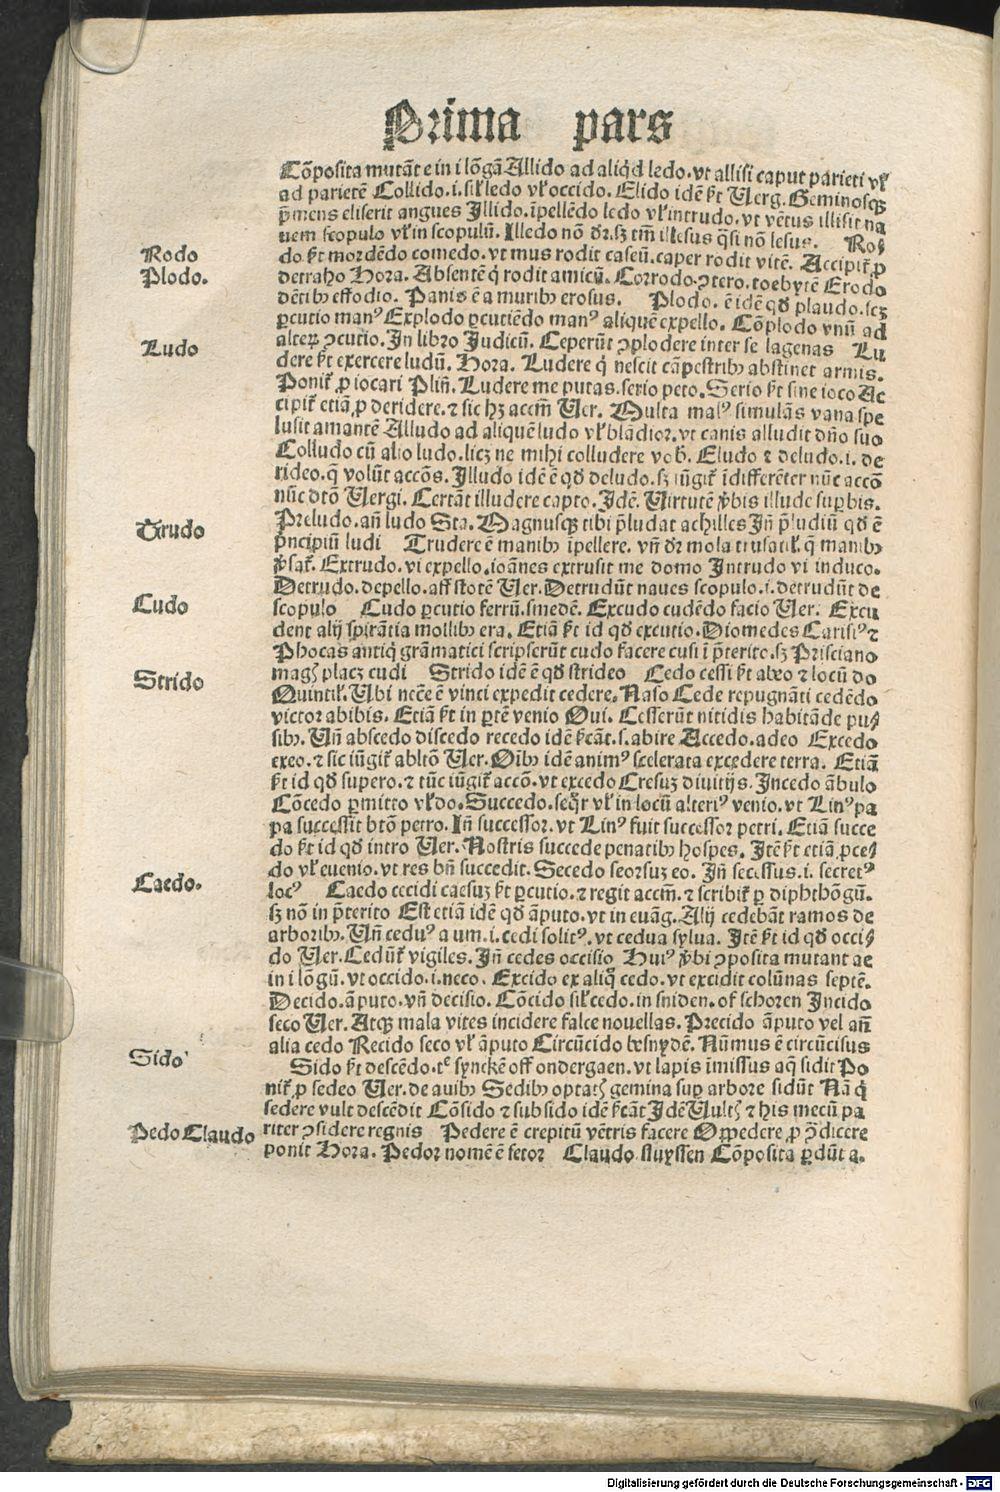 Prima pars
Cōposita mutāt e in i lōgā Allido ad aliqd ledo. vt allisi caput parieti vl
ad parietē Collido. i. sil ledo vl occido. Elido idē st Verg. Geminosqꝫ
p̄mens eliserit angues Illido. īpellēdo ledo vl intrudo. vt vētus illisit na
uem scopulo vl in scopulū. Illedo nō dr. sꝫ tm̄ illesus q̄si nō lesus. Ro⸗
Rodo
do st mordēdo comedo. vt mus rodit caseū. caper rodit vitē. Accipit̄ ꝓ
Plodo.
detraho Hora. Absentē q̇ rodit amicū. Corrodo. ꝯtero. toebytē Erodo
dētibꝫ effodio. Panis ē a muribꝫ erosus. Plodo. ē idē qd̄ plaudo. scꝫ
ꝑcutio manꝰ Explodo ꝑcutiēdo manꝰ aliquē expello. Cōplodo vnū ad
alterꝝ ꝯcutio. In libro Judicū. Ceperūt ꝯplodere inter se lagenas Lu
Ludo
dere st exercere ludū. Hora. Ludere q̇ nescit cāpestribꝫ abstinet armis.
Ponit̄ ꝓ iocari Plin̄. Ludere me putas. serio peto. Serio st sine ioco Ac
cipit̄ etiā ꝓ deridere. ⁊ sic hꝫ accm̄ Ver. Multa malꝰ simulās vana spe
lusit amantē Alludo ad aliquē ludo vl blādior. vt canis alludit dn̄o suo
Colludo cū alio ludo. licꝫ ne mihi colludere vob̄. Eludo ⁊ deludo. i. de
rideo. q̄ volūt accōs. Illudo idē ē qd̄ deludo. sꝫ iūgit̄ īdifferēter nūc accō
nūc dtō Vergi. Certāt illudere capto. Idē. Virtutē v̄bis illude supbis.
Preludo. an̄ ludo Sta. Magnusqꝫ tibi p̄ludat achilles Jn̄ p̄ludiū qd̄ ē
Trudo
p̄ncipiū ludi Trudere ē manibꝫ īpellere. vn̄ dr mola trusatil. q̄ manibꝫ
v̄sat̄. Extrudo. vi expello. ioānes extrusit me domo Intrudo vi induco.
Detrudo. depello. aff stotē Ver. Detrudūt naues scopulo. i. detrudūt de
Cudo
scopulo Cudo ꝑcutio ferrū. smedē. Excudo cudēdo facio Ver. Excu
dent alij spirātia mollibꝫ era. Etiā st id qd̄ excutio. Diomedes Carisiꝰ ⁊
Phocas antiq̇ grāmatici scripserūt cudo facere cusi ī p̄terito. sꝫ Prisciano
Strido
magꝭ placꝫ cudi Strido idē ē qd̄ strideo Cedo cessi st abeo ⁊ locū do
Quintil. Vbi necēe ē vinci expedit cedere. Naso Cede repugnāti cedēdo
victor abibis. Etiā st in ꝑtē venio Oui. Cesserūt nitidis habitāde pis⸗
sibꝫ. Vn̄ abscedo discedo recedo idē sc̄āt. s. abire Accedo. adeo Excedo
exeo. ⁊ sic iūgit̄ abltō Ver. Oībꝫ idē animꝰ scelerata excedere terra. Etiā
st id qd̄ supero. ⁊ tūc iūgit̄ accō. vt excedo Cresuꝫ diuitijs. Incedo ābulo
Cōcedo ꝑmitto vl do. Succedo. seqr̄ vl in locū alteriꝰ venio. vt Linꝰ pa
pa successit btō petro. Jn̄ successor. vt Linꝰ fuit successor petri. Etiā succe
do st id qd̄ intro Ver. Nostris succede penatibꝫ hospes. Itē st etiā ꝓce⸗
do vl euenio. vt res bn̄ succedit. Secedo seorsuꝫ eo. Jn̄ secessus. i. secretꝰ
Caedo.
locꝰ Caedo cecidi caesuꝫ st ꝑcutio. ⁊ regit accm̄. ⁊ scribit̄ ꝑ diphthōgū.
sꝫ nō in p̄terito Est etiā idē qd̄ āputo. vt in euāg. Alij cedebāt ramos de
arboribꝫ. Vn̄ ceduꝰ a um. i. cedi solitꝰ. vt cedua sylua. Itē st id qd̄ occi⸗
do Ver. Cedūt̄ vigiles. Jn̄ cedes occisio Huiꝰ v̄bi ꝯposita mutant ae
in i lōgū. vt occido. i. neco. Excido ex aliq̄ cedo. vt excidit colūnas septē.
Decido. āputo. vn̄ decisio. Cōcido sil cedo. in sniden. of schoren Incido
seco Ver. Atqꝫ mala vites incidere falce nouellas. Precido āputo vel an̄
alia cedo Recido seco vl āputo Circūcido besnydē. Nūmus ē circūcisus
Sido
Sido st descēdo. te synckē off ondergaen. vt lapis īmissus aq̄ sidit Po
nit̄ ꝓ sedeo Ver. de auibꝫ Sedibꝫ optatꝭ gemina suꝑ arbore sidūt Nā q̇
sedere vult descēdit Cōsido ⁊ subsido idē sc̄āt Idē Vultꝭ ⁊ his mecū pa
Pedo Claudo
riter ꝯsidere regnis Pedere ē crepitū vētris facere Oppedere ꝓ ꝯ̄dicere
ponit Hora. Pedor nomē ē fetor Claudo. sluyssen Cōposita ꝑdūt a.
Digitalisierung gefördert durch die Deutsche Forschungsgemeinschaft - DFG